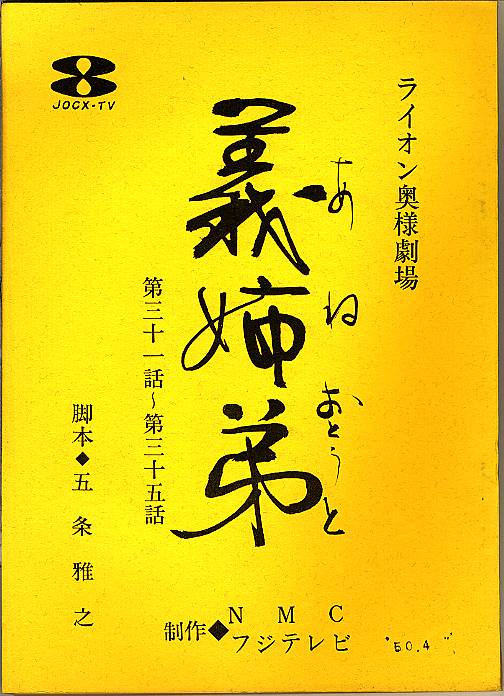 JOCX-TV
ライオン奥様劇場
あねおとうと
義姉弟
第三十一話~第三十五話
脚本◆五条雅之
制作◆NMC
フジテレビ
'50.4